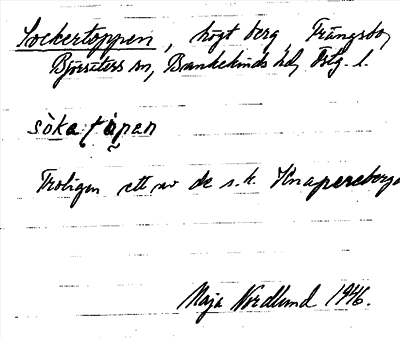 Sockertoppen, högt berg, Trångsbo,
Björsäters sn, Bankekinds hd, Östg. l.
sòkatåpan
Troligen ett av de s.k. Knapereberga
Maja Nordlund 1946.